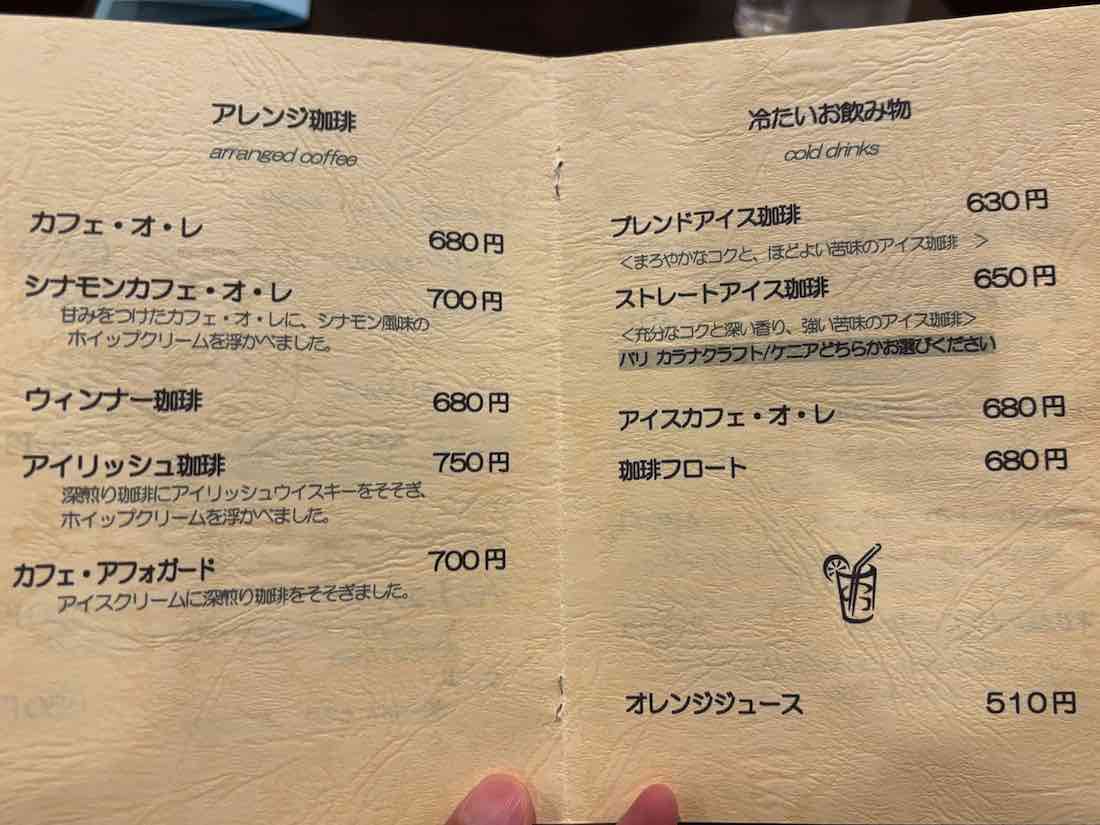 アレンジ珈琲
arranged coffee
カフェ・オ・レ 680円
シナモンカフェ・オ・レ 700円
甘みをつけたカフェ・オ・レに、シナモン風味の
ホイップクリームを浮かべました。
ウィンナー珈琲 680円
アイリッシュ珈琲 750円
深煎り珈琲にアイリッシュウイスキーをそそぎ、
ホイップクリームを浮かべました。
カフェ・アフォガード 700円
アイスクリームに深煎り珈琲をそそぎました。
冷たいお飲み物
cold drinks
ブレンドアイス珈琲 630円
<まろやかなコクと、ほどよい苦味のアイス珈琲 >
ストレートアイス珈琲 650円
<充分なコクと深い香り、強い苦味のアイス珈琲>
バリ カラナクラフト/ケニアどちらかお選びください
アイスカフェ・オ・レ 680円
珈琲フロート 680円
オレンジジュース 510円